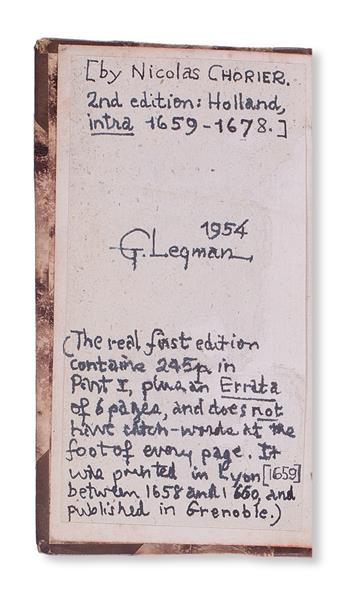 [by Nicolas CHORIER.
2nd edition: Holland,
intra 1659-1678.]
1954
G. Legman
(The real first edition
contains 245p. in
Part I, plus an Errata
of 6 pages, and does not
have catch-words at the
foot of every page. It
was printed in Lyon [1659]
between 1658 and 1660, and
published in Grenoble.)